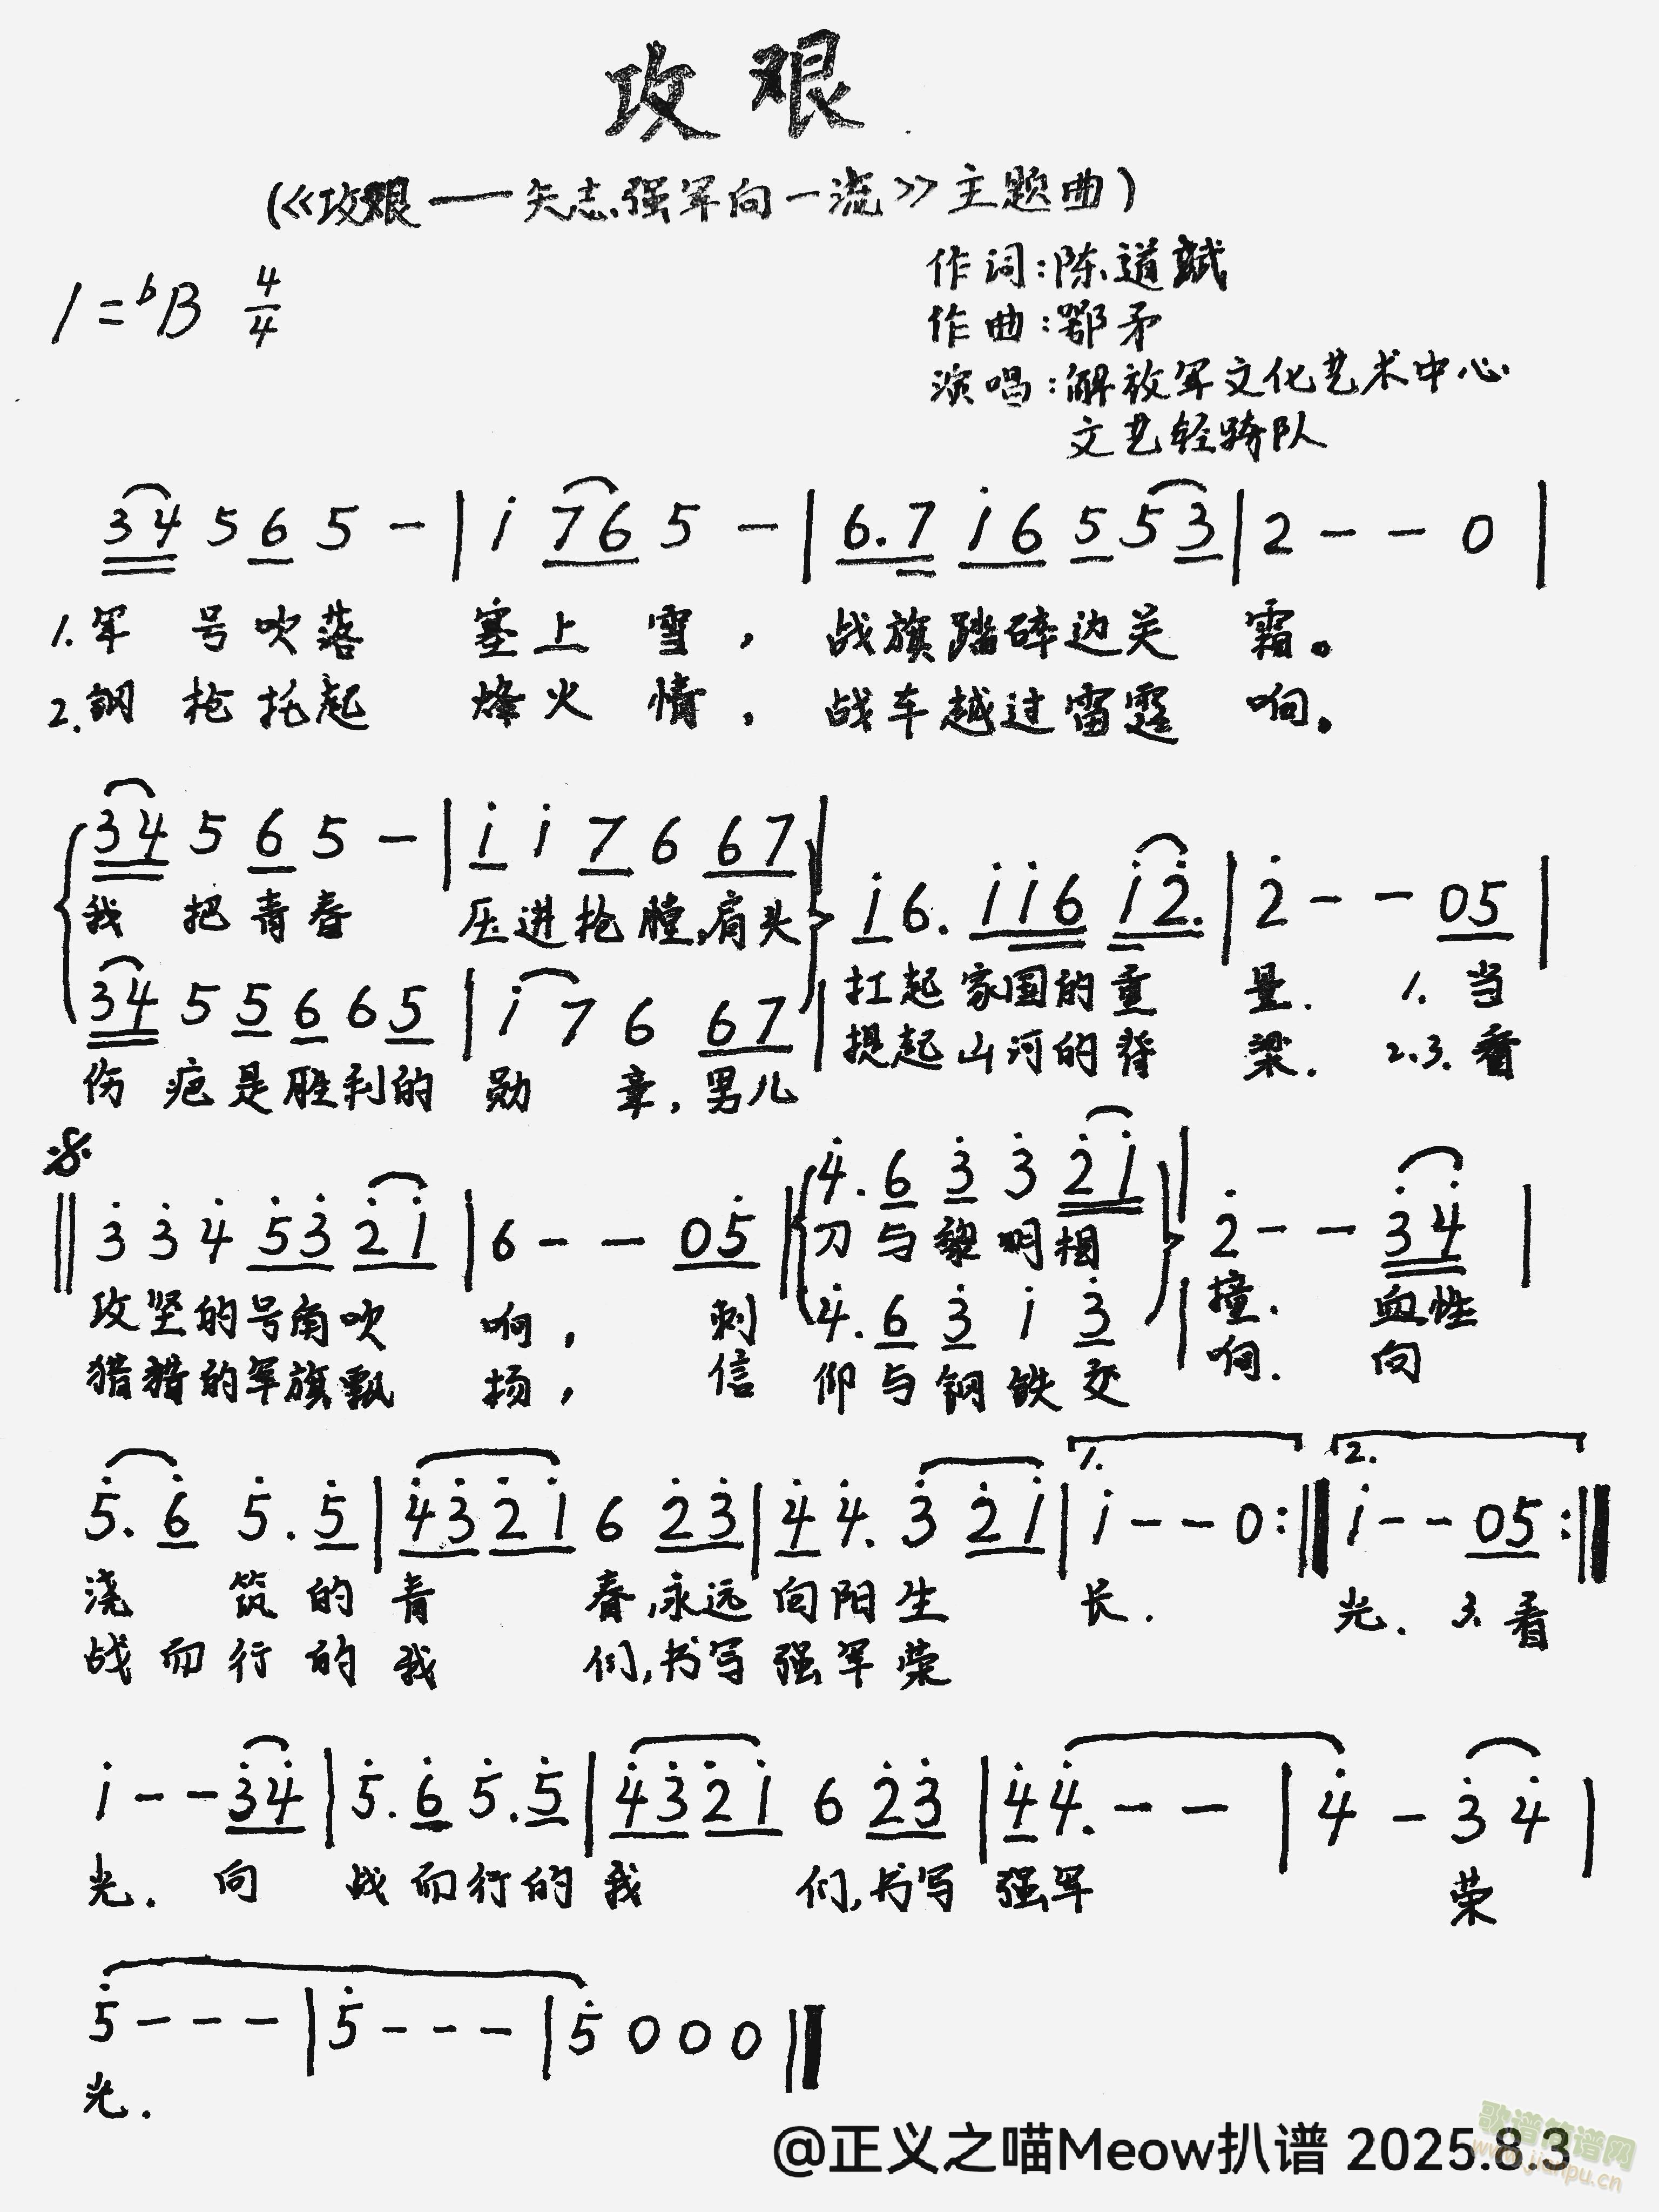 攻艰
(《攻艰——矢志强军向一流》主题曲)
作词:陈道斌
1=bB 4/4
作曲:鄂矛
演唱:解放军文化艺术中心
文艺轻骑队
3 4 5 6 5 - | i 7 6 5 - | 6. 7 i 6 5 5 3 | 2 - - 0 |
1.军号吹落塞上雪,战旗踏碎边关霜。
2.钢枪托起烽火情,战车越过雷霆响。
3 4 5 6 5 - | i i 7 6 6 7 |
我把青春压进枪膛,肩头
i 6. i i 6 i 2. | 2 - - 0 5 |
扛起家国的重量. 1.当
3 4 5 5 6 6 5 | i 7 6 6 7 |
提起山河的脊梁. 2.3.看
伤疤是胜利的勋章,男儿
4. 6 3 3 2 1 |
3 3 4 5 3 2 1 | 6 - - 0 5 | 2 - - 3 4 |
刀与黎明相撞. 血性
攻坚的号角吹响,刺
4. 6 3 i 3 |
猎猎的军旗飘扬,信仰与钢铁交响. 向
1. 2.
5. 6 5. 5 | 4 3 2 1 6 2 3 | 4 4. 3 2 1 | i - - 0 :|| i - - 0 5 :||
浇筑的青春,永远向阳生长. 光. 3.看
战而行的我们,书写强军荣
i - - 3 4 | 5. 6 5. 5 | 4 3 2 1 6 2 3 | 4 4. - - | 4 - 3 4 |
光. 向战而行的我们,书写强军荣
5 - - - | 5 - - - | 5 0 0 0 ||
光.
@正义之喵Meow扒谱 2025.8.3
歌谱简谱网
www.jianpu.cn